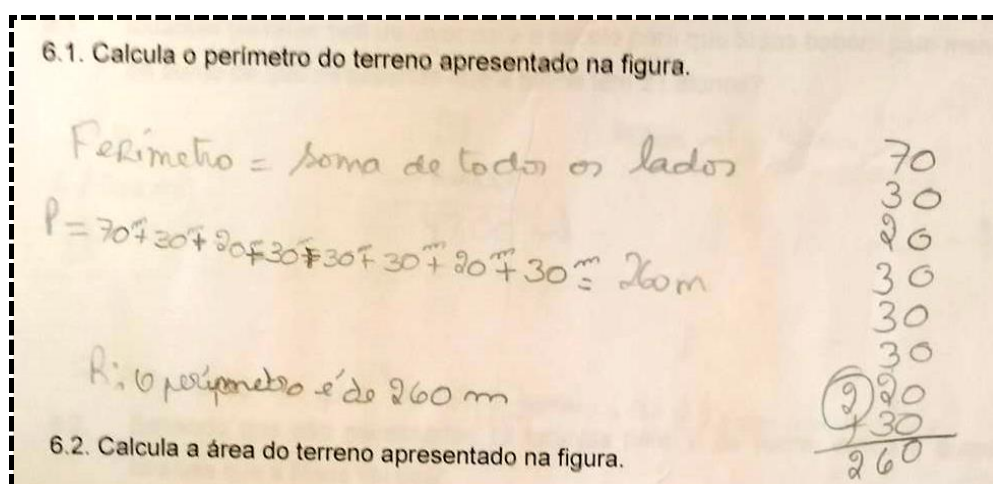 6.1. Calcula o perímetro do terreno apresentado na figura.
Ferimetro = soma de todos os lados
P = 70m+30m+20m+30m+30m+30m+20m+30m = 260m
R: O perímetro é de 260 m
70
30
20
30
30
30
(2) 20
+ 30
260
6.2. Calcula a área do terreno apresentado na figura.